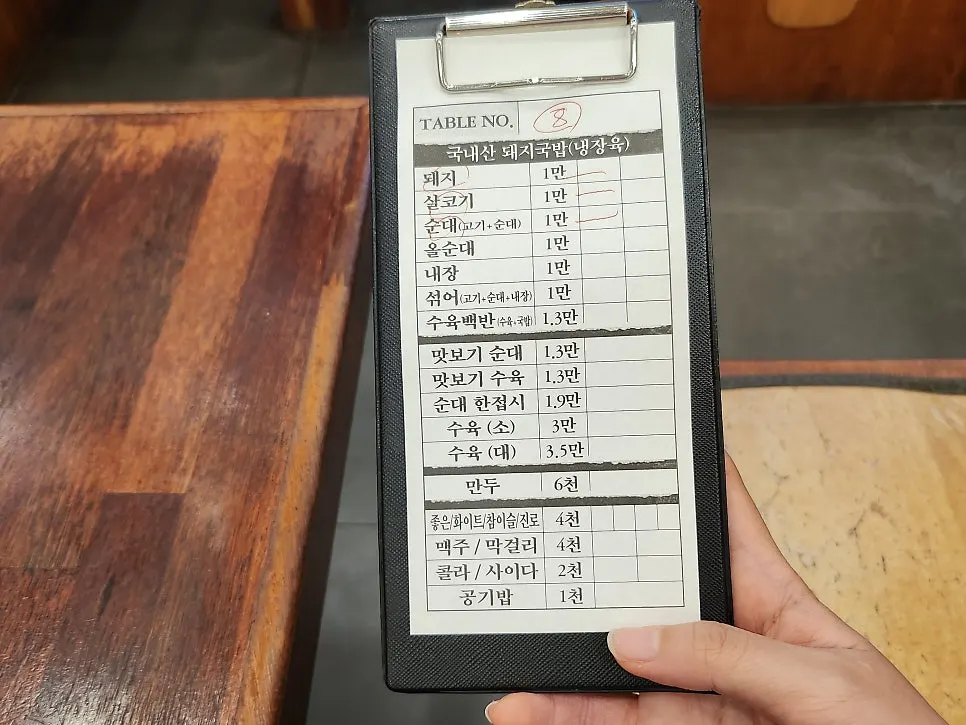 TABLE NO. 8
국내산 돼지국밥(냉장육)
돼지 1만
살코기 1만
순대(고기+순대) 1만
올순대 1만
내장 1만
섞어(고기+순대+내장) 1만
수육백반(수육+국밥) 1.3만
맛보기 순대 1.3만
맛보기 수육 1.3만
순대 한접시 1.9만
수육 (소) 3만
수육 (대) 3.5만
만두 6천
좋은/화이트/참이슬/진로 4천
맥주 / 막걸리 4천
콜라 / 사이다 2천
공기밥 1천